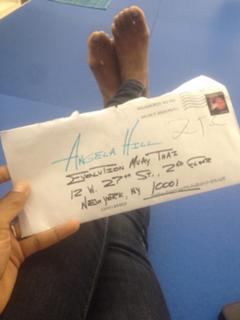 ANGELA HILL
EVOLUTION MUAY THAI
12 W. 27TH ST., 2ND FLOOR
NEW YORK, NY 10001